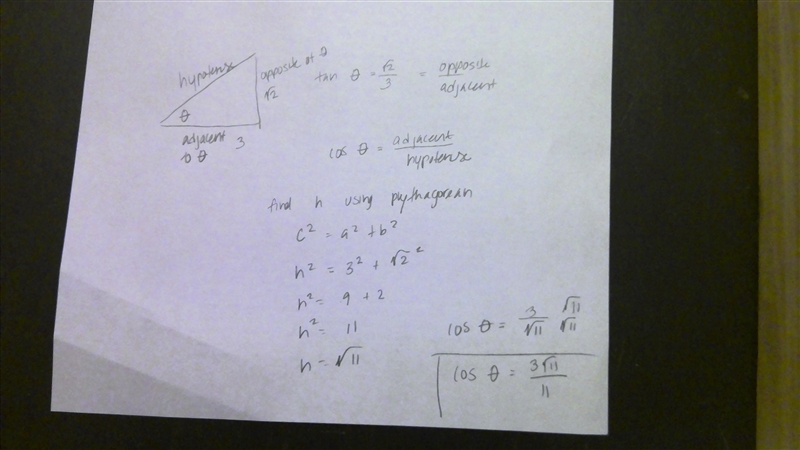 hypotenuse
opposite of θ
√2
θ
adjacent
to θ 3
tan θ = √2/3 = opposite/adjacent
cos θ = adjacent/hypotenuse
find h using pythagorean
c² = a² + b²
h² = 3² + √2²
h² = 9 + 2
h² = 11
h = √11
cos θ = 3/√11 √11/√11
cos θ = 3√11/11